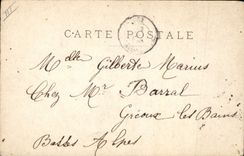 CARTE POSTALE
Mdlle Gilberte Marius
Chez Mr Barral
Gréoux-les-Bains
Basses Alpes